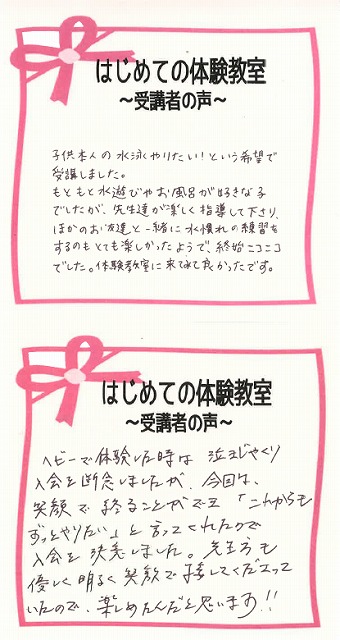 はじめての体験教室
～受講者の声～
子供本人の水泳やりたい！という希望で
受講しました。
もともと水遊びやお風呂が好きな子
でしたが、先生達が楽しく指導して下さり、
ほかのお友達と一緒に水慣れの練習を
するのもとても楽しかったようで、終始ニコニコ
でした。体験教室に来てみて良かったです。
はじめての体験教室
～受講者の声～
ベビーで体験した時は 泣きじゃくり
入会を断念しましたが、今回は、
笑顔で終ることができ「これからも
ずっとやりたい」と言ってくれたので
入会を決意しました。先生方も
優しく明るく笑顔で接してくださって
いたので、楽しめたんだと思います!!